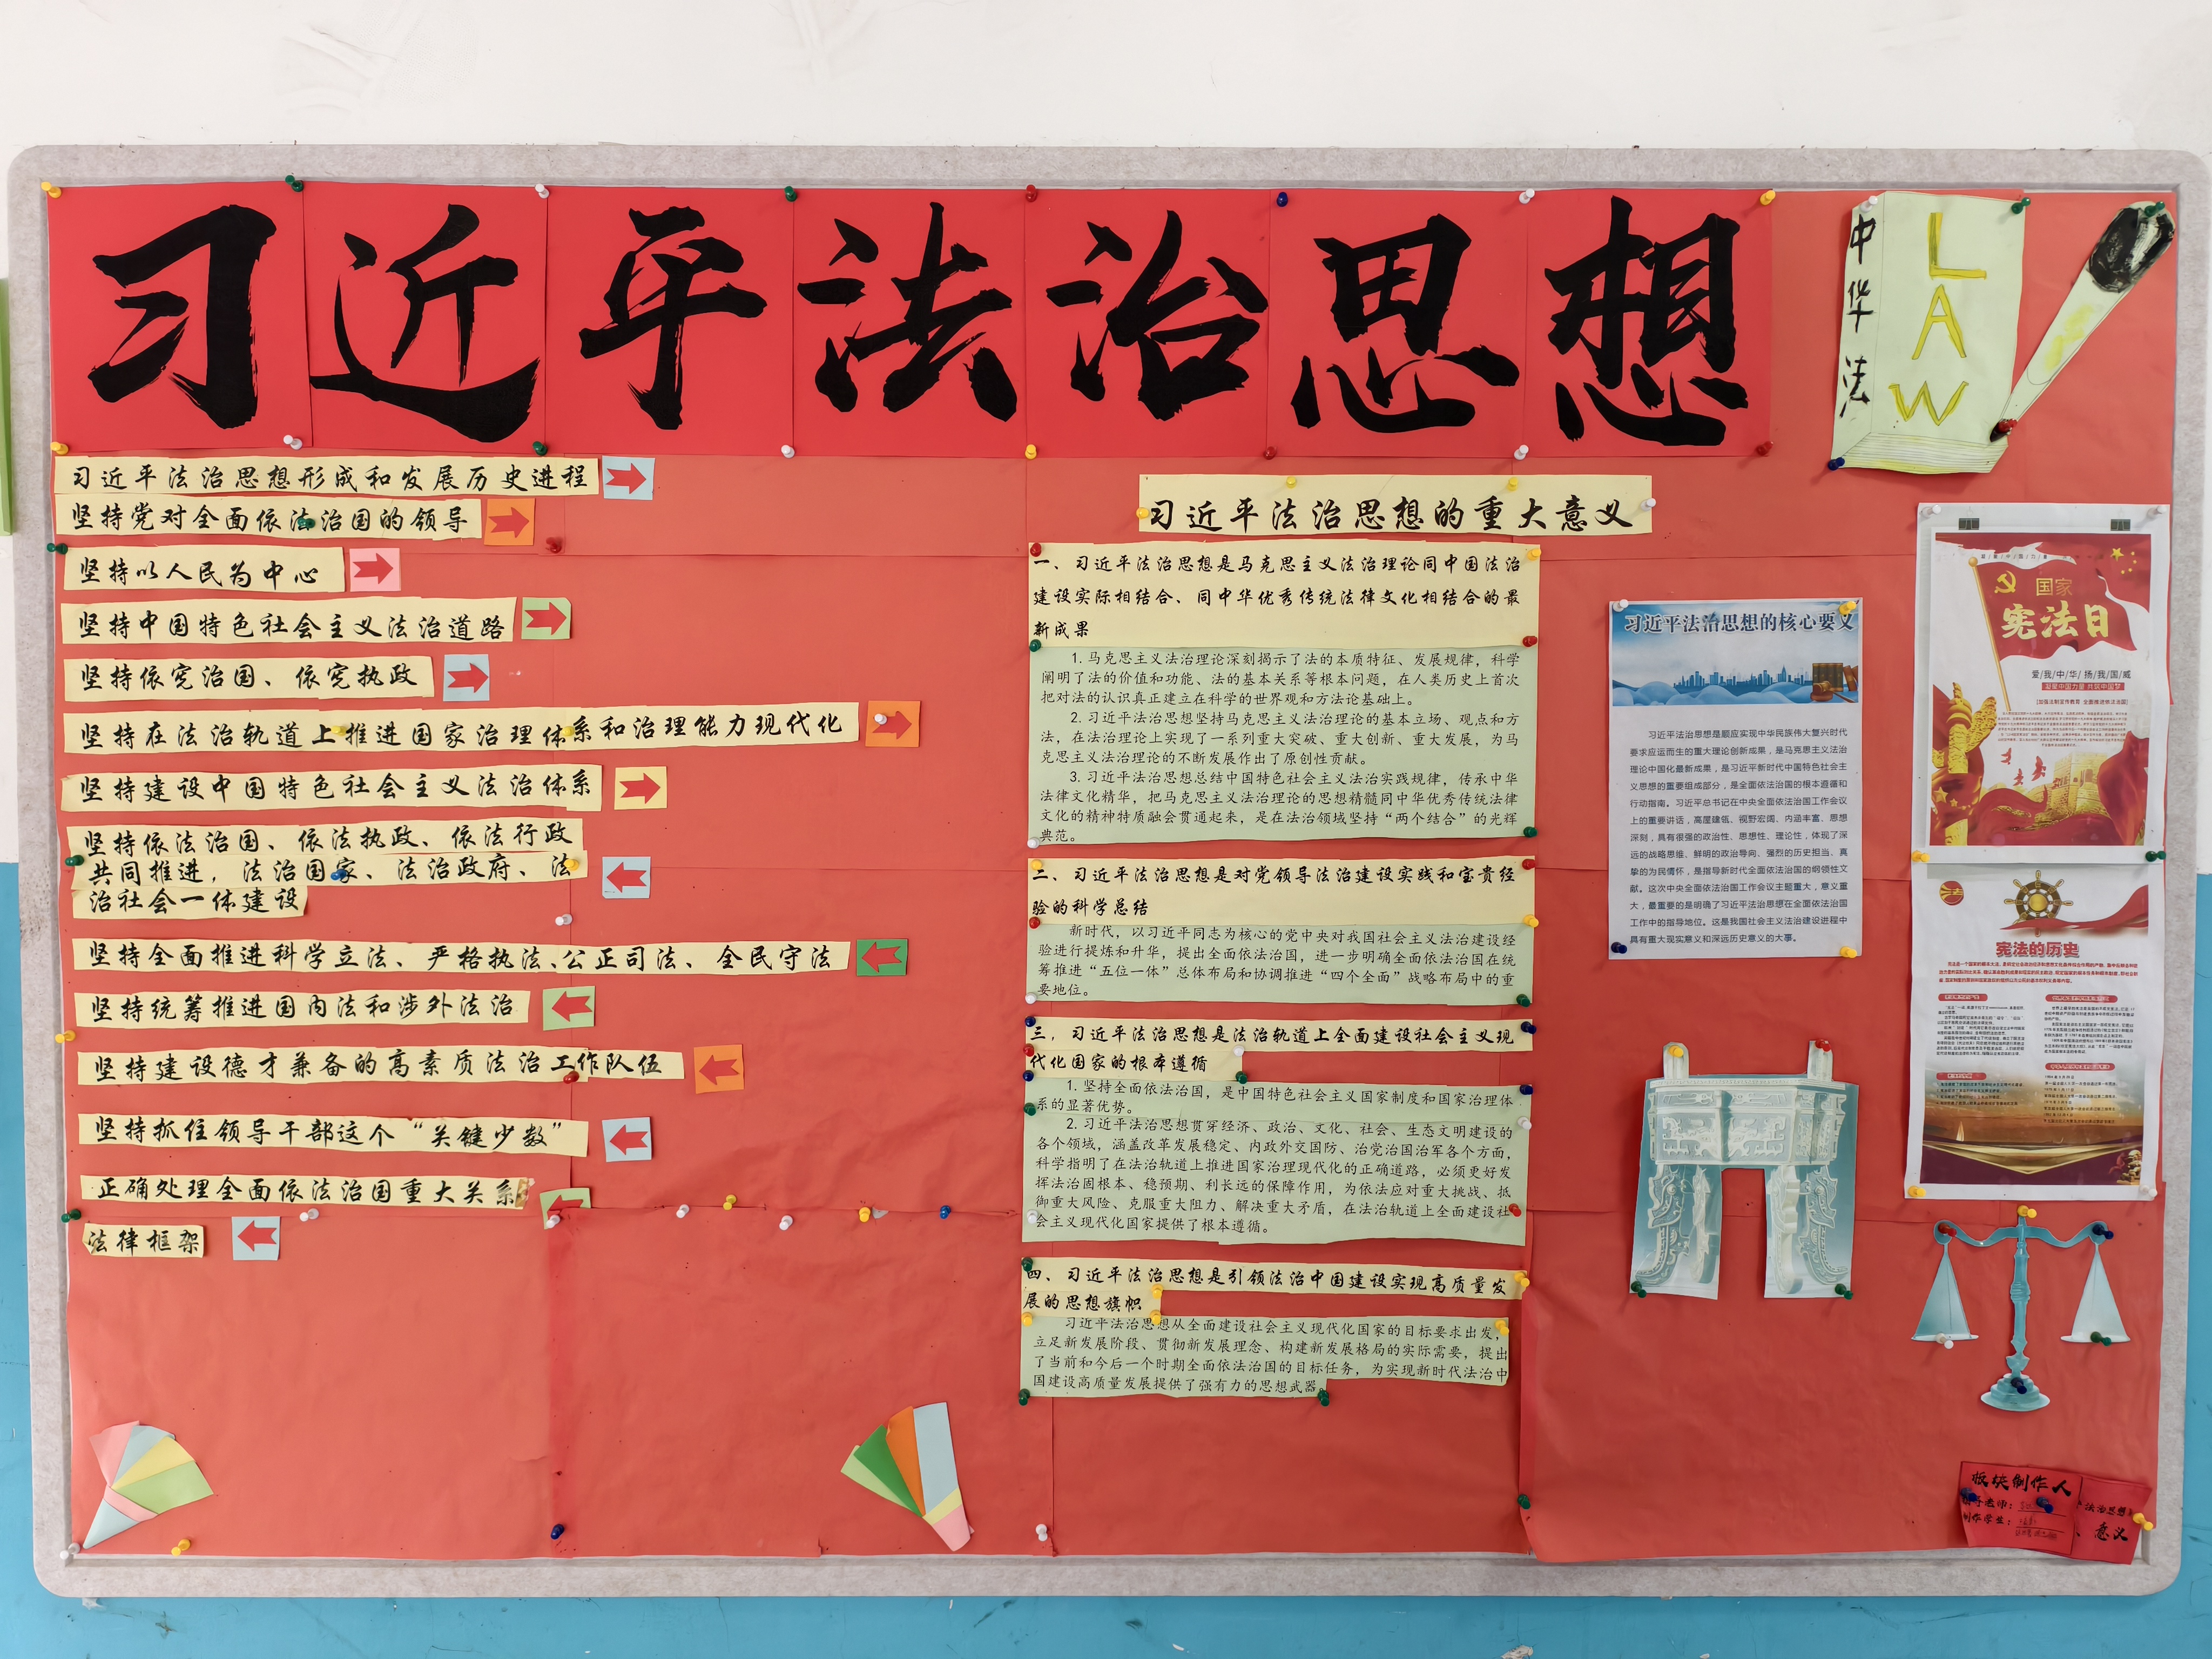 习近平法治思想
中华法
LAW
习近平法治思想形成和发展历史进程
坚持党对全面依法治国的领导
坚持以人民为中心
坚持中国特色社会主义法治道路
坚持依宪治国、依宪执政
坚持在法治轨道上推进国家治理体系和治理能力现代化
坚持建设中国特色社会主义法治体系
坚持依法治国、依法执政、依法行政
共同推进，法治国家、法治政府、法
治社会一体建设
坚持全面推进科学立法、严格执法、公正司法、全民守法
坚持统筹推进国内法和涉外法治
坚持建设德才兼备的高素质法治工作队伍
坚持抓住领导干部这个“关键少数”
正确处理全面依法治国重大关系
法律框架
习近平法治思想的重大意义
一、习近平法治思想是马克思主义法治理论同中国法治
建设实际相结合、同中华优秀传统法律文化相结合的最
新成果
1.马克思主义法治理论深刻揭示了法的本质特征、发展规律，科学
阐明了法的价值和功能、法的基本关系等根本问题，在人类历史上首次
把对法的认识真正建立在科学的世界观和方法论基础上。
2.习近平法治思想坚持马克思主义法治理论的基本立场、观点和方
法，在法治理论上实现了一系列重大突破、重大创新、重大发展，为马
克思主义法治理论的不断发展作出了原创性贡献。
3.习近平法治思想总结中国特色社会主义法治实践规律，传承中华
法律文化精华，把马克思主义法治理论的思想精髓同中华优秀传统法律
文化的精神特质融会贯通起来，是在法治领域坚持“两个结合”的光辉
典范。
二、习近平法治思想是对党领导法治建设实践和宝贵经
验的科学总结
新时代，以习近平同志为核心的党中央对我国社会主义法治建设经
验进行提炼和升华，提出全面依法治国，进一步明确全面依法治国在统
筹推进“五位一体”总体布局和协调推进“四个全面”战略布局中的重
要地位。
三，习近平法治思想是法治轨道上全面建设社会主义现
代化国家的根本遵循
1.坚持全面依法治国，是中国特色社会主义国家制度和国家治理体
系的显著优势。
2.习近平法治思想贯穿经济、政治、文化、社会、生态文明建设的
各个领域，涵盖改革发展稳定、内政外交国防、治党治国治军各个方面，
科学指明了在法治轨道上推进国家治理现代化的正确道路，必须更好发
挥法治固根本、稳预期、利长远的保障作用，为依法应对重大挑战、抵
御重大风险、克服重大阻力、解决重大矛盾，在法治轨道上全面建设社
会主义现代化国家提供了根本遵循。
四、习近平法治思想是引领法治中国建设实现高质量发
展的思想旗帜
习近平法治思想从全面建设社会主义现代化国家的目标要求出发，
立足新发展阶段、贯彻新发展理念、构建新发展格局的实际需要，提出
了当前和今后一个时期全面依法治国的目标任务，为实现新时代法治中
国建设高质量发展提供了强有力的思想武器
习近平法治思想的核心要义
习近平法治思想是顺应实现中华民族伟大复兴时代
要求应运而生的重大理论创新成果，是马克思主义法治
理论中国化最新成果，是习近平新时代中国特色社会主
义思想的重要组成部分，是全面依法治国的根本遵循和
行动指南。习近平总书记在中央全面依法治国工作会议
上的重要讲话，高屋建瓴、视野宏阔、内涵丰富、思想
深刻，具有很强的政治性、思想性、理论性，体现了深
远的战略思维、鲜明的政治导向、强烈的历史担当、真
挚的为民情怀，是指导新时代全面依法治国的纲领性文
献。这次中央全面依法治国工作会议主题重大，意义重
大，最重要的是明确了习近平法治思想在全面依法治国
工作中的指导地位。这是我国社会主义法治建设进程中
具有重大现实意义和深远历史意义的大事。
国家
宪法日
爱/我/中/华/扬/我/国/威
凝聚中国力量 共筑中国梦
[加强法制宣传教育 全面推进依法治国]
宪法的历史
板块制作人
老师：
制作学生：
法治思想
意义